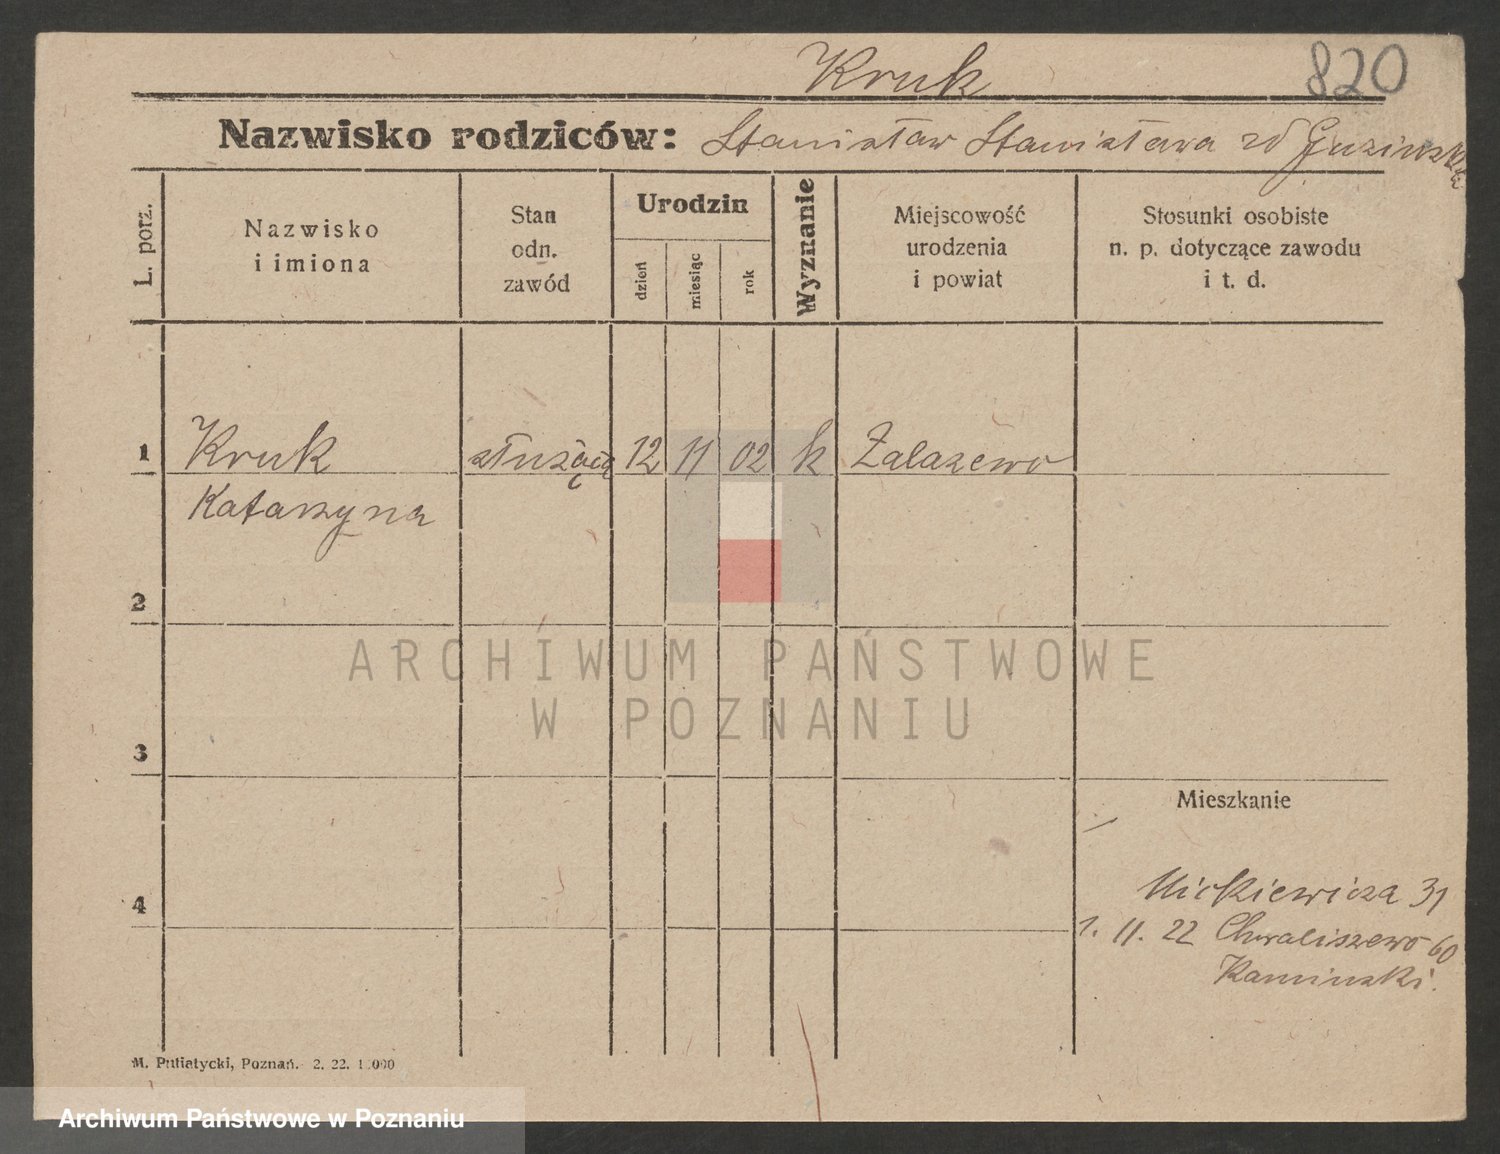 Kruk 820
Nazwisko rodziców: Stanisław Stanisława zd Guzińska
L. porz.
Nazwisko
i imiona
Stan
odn.
zawód
Urodzin
dzień
miesiąc
rok
Wyznanie
Miejscowość
urodzenia
i powiat
Stosunki osobiste
n. p. dotyczące zawodu
i t. d.
1 Kruk służąca 12 11 02 k Zalasewo
Katarzyna
2
ARCHIWUM PAŃSTWOWE
W POZNANIU
3
Mieszkanie
4
Mickiewicza 31
1. 11. 22 Chwaliszewo 60
Kaminski.
M. Putiatycki, Poznań. 2. 22.
Archiwum Państwowe w Poznaniu